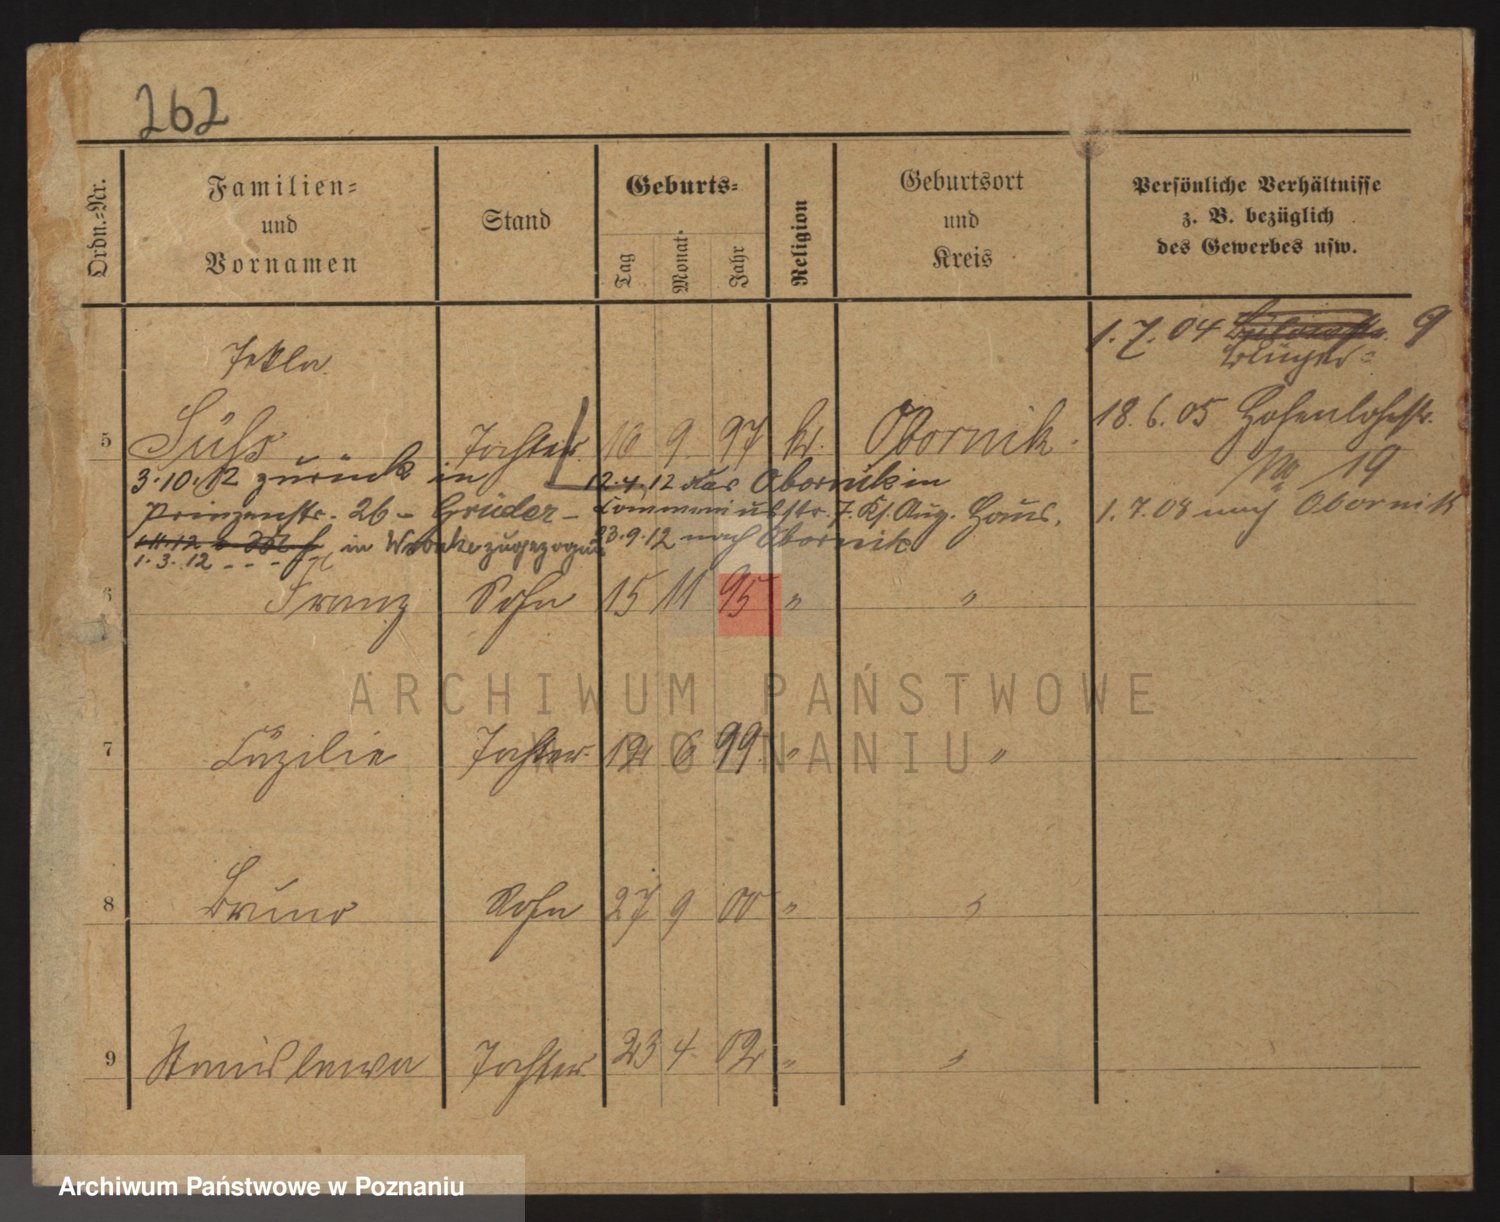 262
Ordn.-Nr.
Familien-
und
Vornamen
Stand
Geburts-
Tag
Monat
Jahr
Religion
Geburtsort
und
Kreis
Persönliche Verhältnisse
z. B. bezüglich
des Gewerbes usw.
1. 7. 04 9
Tekla
18. 6. 05 Hohenlohestr.
No 19
5 Süss Tochter 9. 97 k. Obornik.
3.10.12 zurück in
12.4.12 aus Obornik in
Prinzenstr. 26 - Grüder -
7. Aug. Haus.
1. 7. 08 nach Obornik
in Wronke zugezogen
23.9.12 nach Obornik
1. 3. 12 - - -
6 Franz Sohn 15 11 95 " "
7 Cäzilie Tochter 6 99 " "
8 Bruno Sohn 27 9 00 " "
9 Stanislawa Tochter 23 4. 02 " "
ARCHIWUM PAŃSTWOWE
W POZNANIU
Archiwum Państwowe w Poznaniu